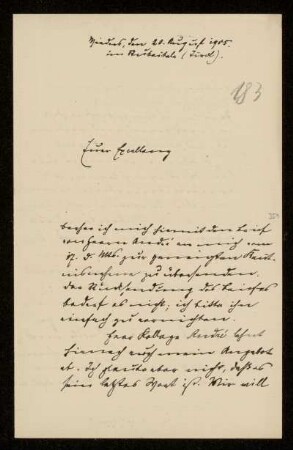 Mieders, den 20. August 1905.
im Stubaitale (Tirol).
183
Euer Excellenz
beehre ich mich hiermit den Brief
von Herrn André an mich vom
17. d. Mts. zur geneigten Kennt-
nisnahme zu übersenden.
Der Rücksendung des Briefes
bedarf es nicht, ich bitte ihn
einfach zu vernichten.
Herr Kollege André lehnt
hiernach auch mein Angebot
ab. Ich glaube aber nicht, daß es
sein letztes Wort ist. Wir will